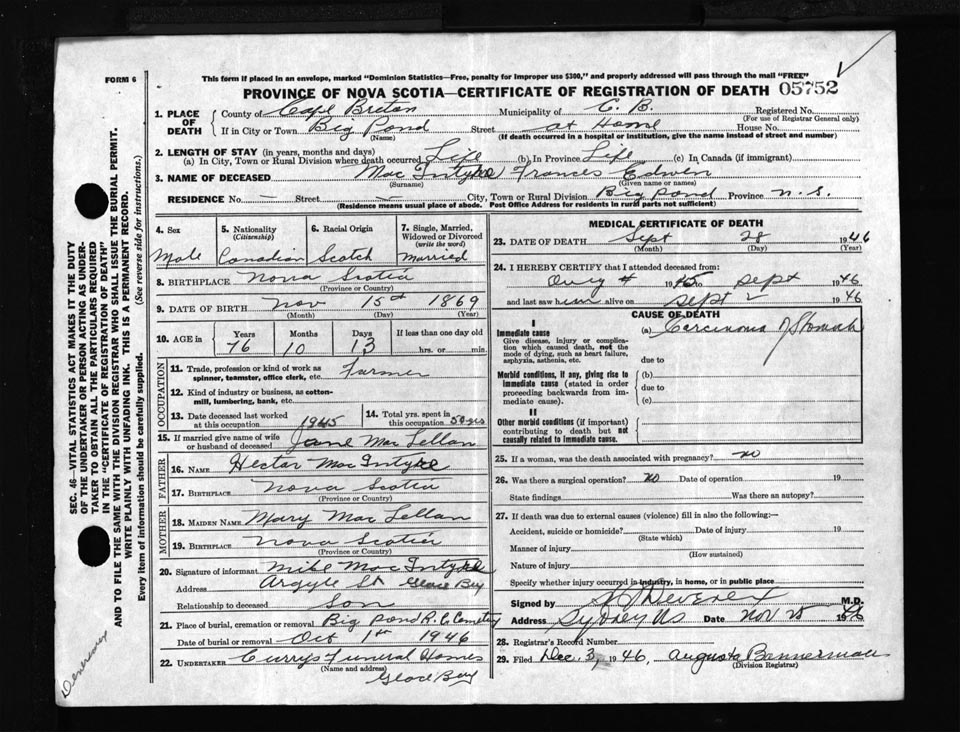 FORM 6
This form if placed in an envelope, marked "Dominion Statistics—Free, penalty for improper use $300," and properly addressed will pass through the mail "FREE"
PROVINCE OF NOVA SCOTIA—CERTIFICATE OF REGISTRATION OF DEATH 05752
1. PLACE OF DEATH County of Cape Breton Municipality of C. B. Registered No.
(For use of Registrar General only)
If in City or Town Big Pond Street at Home House No.
(Name) (If death occurred in a hospital or institution, give the name instead of street and number)
2. LENGTH OF STAY (in years, months and days)
(a) In City, Town or Rural Division where death occurred Life (b) In Province Life (c) In Canada (if immigrant)
3. NAME OF DECEASED Mac Intyre Frances Edwin
(Surname) (Given name or names)
RESIDENCE No. — Street — City, Town or Rural Division Big Pond Province N. S.
(Residence means usual place of abode. Post Office Address for residents in rural parts not sufficient)
4. Sex Male
5. Nationality (Citizenship) Canadian
6. Racial Origin Scotch
7. Single, Married, Widowed or Divorced (write the word) Married
8. BIRTHPLACE Nova Scotia
(Province or Country)
9. DATE OF BIRTH Nov 15th 1869
(Month) (Day) (Year)
10. AGE in Years 76 Months 10 Days 13 If less than one day old hrs. or min.
OCCUPATION
11. Trade, profession or kind of work as spinner, teamster, office clerk, etc. Farmer
12. Kind of industry or business, as cotton-mill, lumbering, bank, etc.
13. Date deceased last worked at this occupation 1945
14. Total yrs. spent in this occupation 50 yrs
15. If married give name of wife or husband of deceased Jane Mac Lellan
FATHER
16. NAME Hector Mac Intyre
17. BIRTHPLACE Nova Scotia
(Province or Country)
MOTHER
18. MAIDEN NAME Mary Mac Lellan
19. BIRTHPLACE Nova Scotia
(Province or Country)
20. Signature of informant Mike Mac Intyre
Address Argyle St Glace Bay
Relationship to deceased Son
21. Place of burial, cremation or removal Big Pond R. C. Cemetery
Date of burial or removal Oct 1st 1946
22. UNDERTAKER Currys Funeral Homes
(Name and address) Glace Bay
MEDICAL CERTIFICATE OF DEATH
23. DATE OF DEATH Sept 28 1946
(Month) (Day) (Year)
24. I HEREBY CERTIFY that I attended deceased from:
1945 to Sept 1946
and last saw him alive on Sept 2 1946
CAUSE OF DEATH
I
Immediate cause (a) Carcinoma of Stomach
Give disease, injury or complication which caused death, not the mode of dying, such as heart failure, asphyxia, asthenia, etc.
due to
Morbid conditions, if any, giving rise to immediate cause (stated in order proceeding backwards from immediate cause).
(b)
due to
(c)
II
Other morbid conditions (if important) contributing to death but not causally related to immediate cause.
25. If a woman, was the death associated with pregnancy? no
26. Was there a surgical operation? no Date of operation 19
State findings Was there an autopsy?
27. If death was due to external causes (violence) fill in also the following:—
Accident, suicide or homicide? Date of injury 19
(State which)
Manner of injury
(How sustained)
Nature of injury
Specify whether injury occurred in industry, in home, or in public place
Signed by Deverex M.D.
Address Sydney NS Date Nov 25 1946
28. Registrar's Record Number
29. Filed Dec. 3, 1946, Augusta Bannerman
(Division Registrar)
SEC. 46—VITAL STATISTICS ACT MAKES IT THE DUTY
OF THE UNDERTAKER OR PERSON ACTING AS UNDER-
TAKER TO OBTAIN ALL THE PARTICULARS REQUIRED
IN THE "CERTIFICATE OF REGISTRATION OF DEATH"
AND TO FILE THE SAME WITH THE DIVISION REGISTRAR WHO SHALL ISSUE THE BURIAL PERMIT.
WRITE PLAINLY WITH UNFADING INK. THIS IS A PERMANENT RECORD.
Every item of information should be carefully supplied. (See reverse side for instructions.)